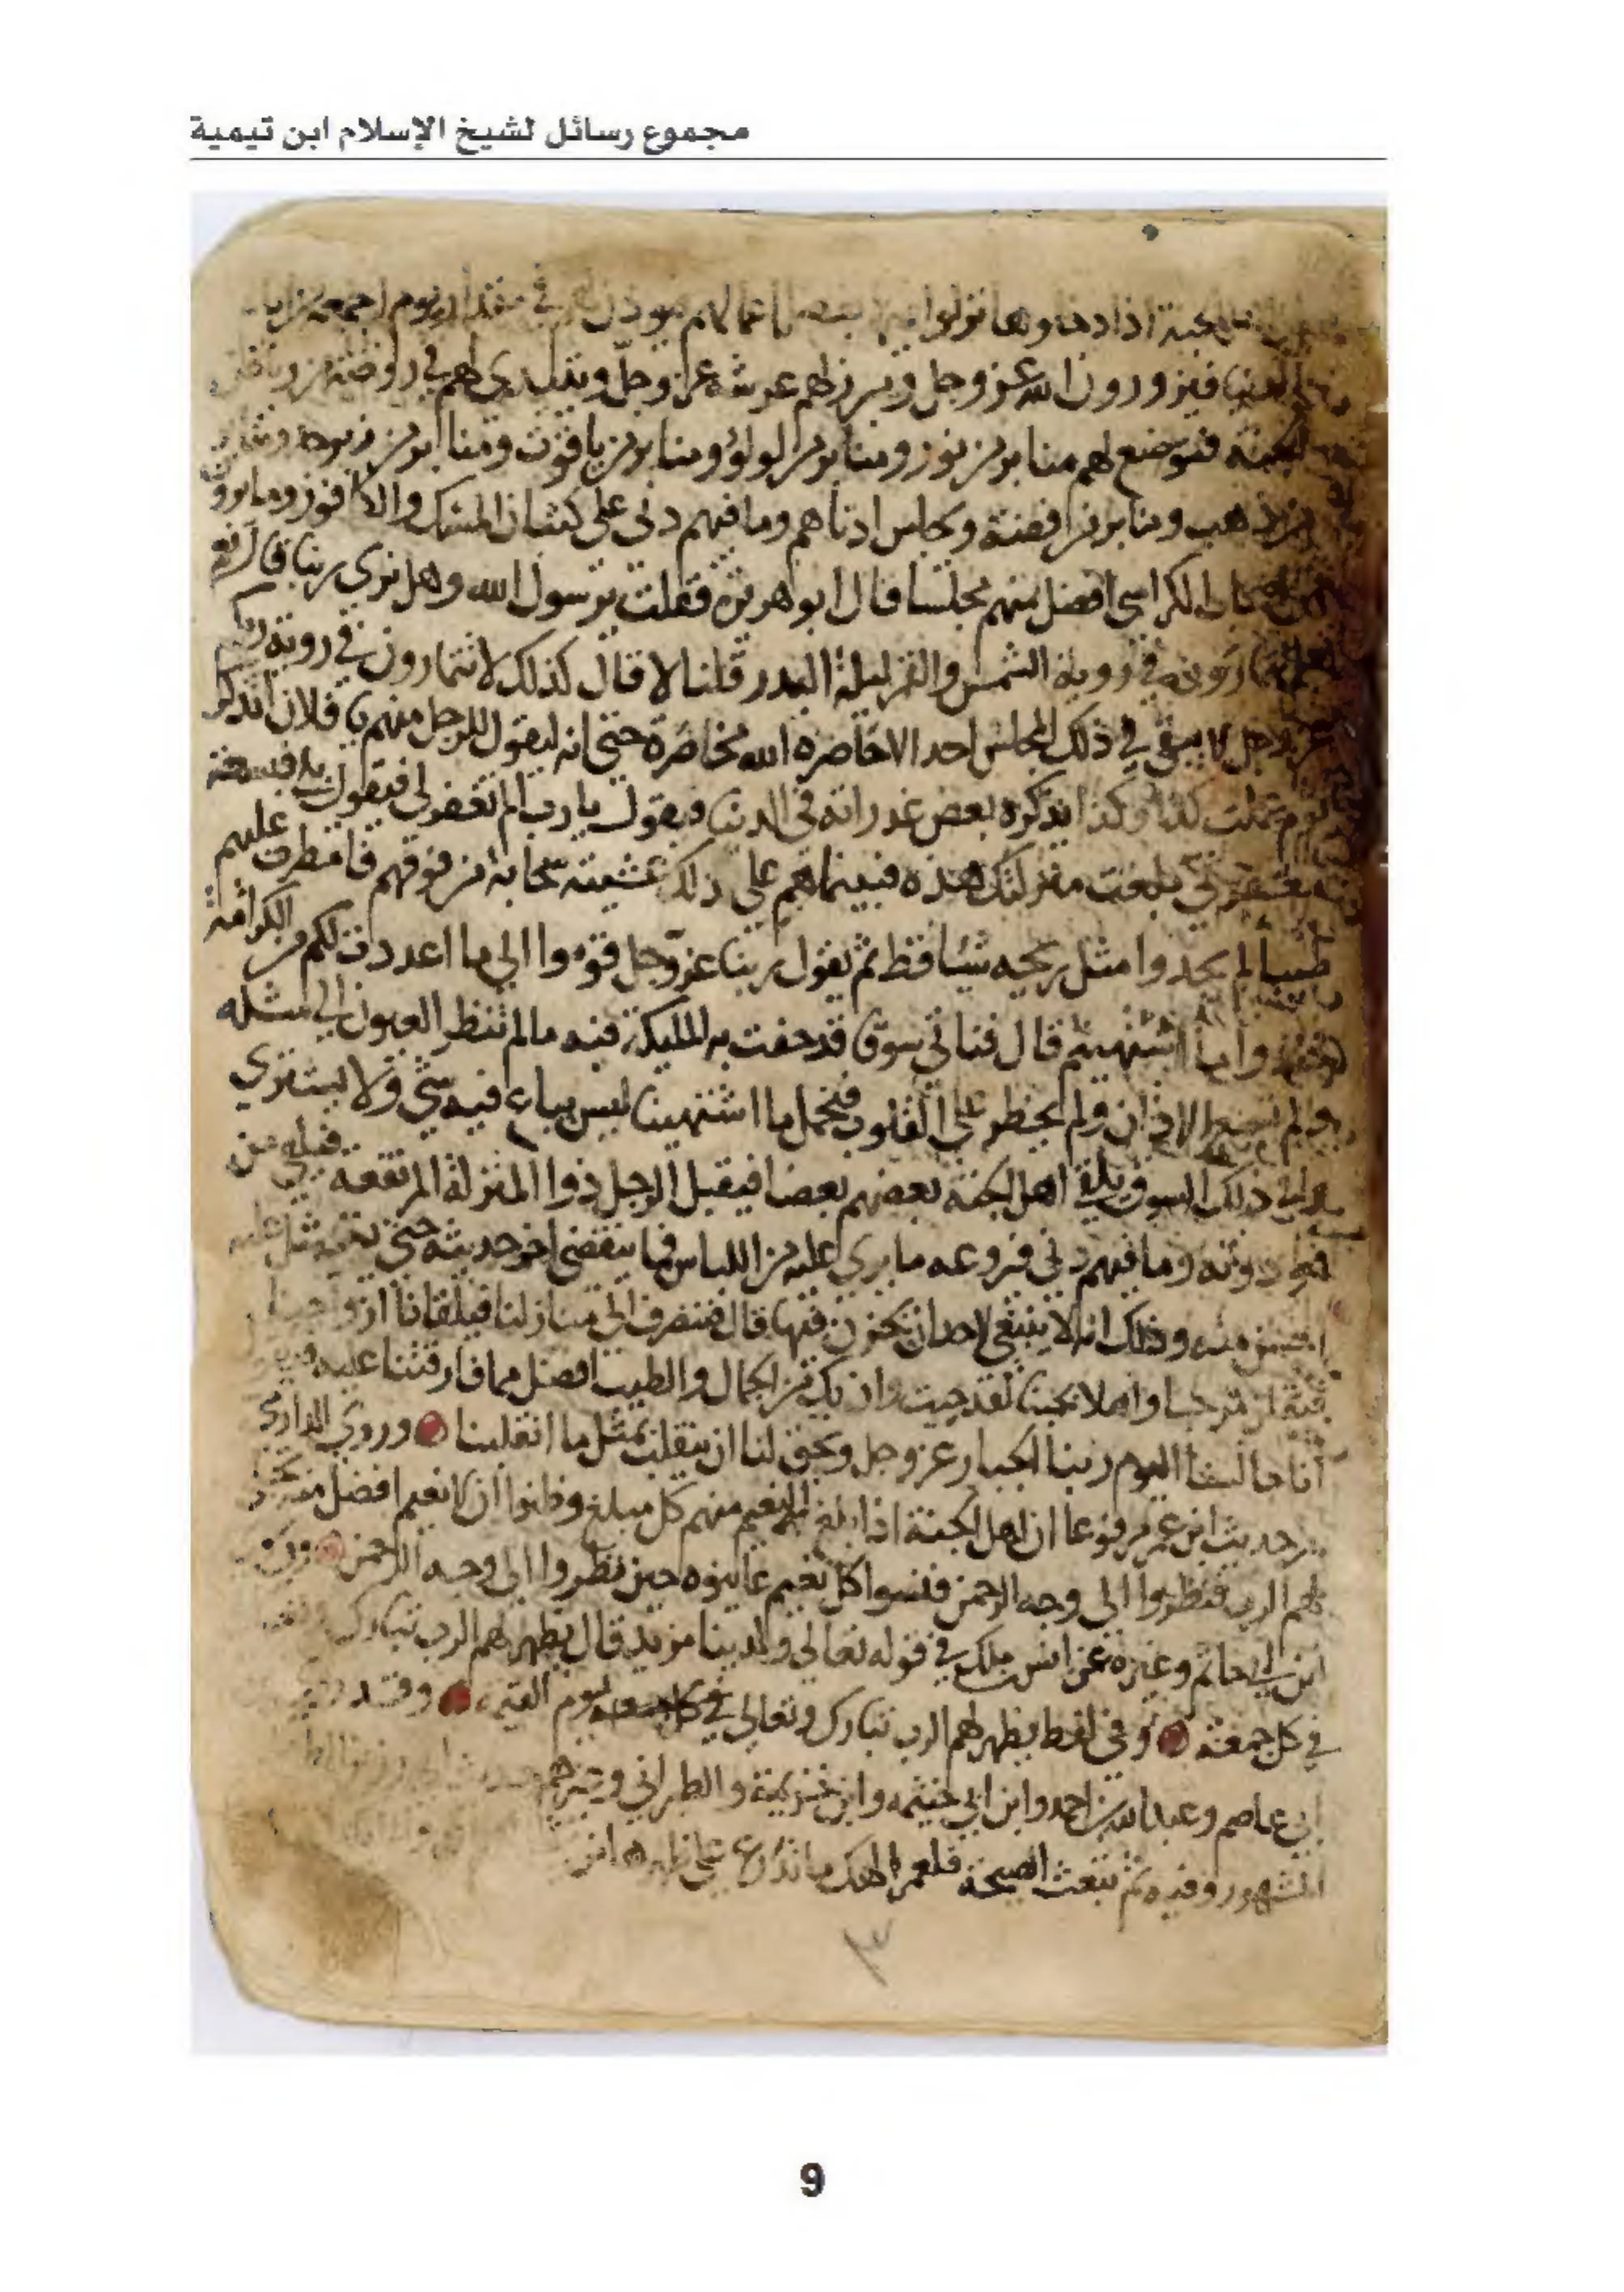 مجموع رسائل لشيخ الإسلام ابن تيمية
الجنة اذا دخلوها نزلوا بفضل اعمالهم في مقدار يوم الجمعة من ايام
الدنيا فيزورون الله عز وجل ويبرز لهم عرشه عز وجل ويتبدى لهم في روضة من رياض
الجنة فتوضع لهم منابر من نور ومنابر من لولؤ ومنابر من ياقوت ومنابر من زبرجد ومنابر
من ذهب ومنابر من فضة ويجلس ادناهم وما فيهم دني على كثبان المسك والكافور وما يرون
الكراسي افضل منهم مجلسا قال ابو هريرة فقلت يرسول الله وهل نرى ربنا قال نعم
هل تمارون في روية الشمس والقمر ليلة البدر قلنا لا قال كذلك لا تتمارون في روية ربكم
عز وجل لا يبقى في ذلك المجلس احد الا خاصره الله مخاصرة حتى انه ليقول للرجل منهم يا فلان اتذكر
يوم عملت كذا وكذا يذكره بعض غدراته في الدنيا فيقول يا رب الم تغفر لي فيقول بلى فبسعة
مغفرتي بلغت منزلتك هذه فبينما هم على ذلك غشيته سحابة من فوقهم فامطرت عليهم
طيبا لم يجدوا مثل ريحه شيئا قط ثم يقول ربنا عز وجل قوموا الى ما اعددت لكم من الكرامة
اشتهيتم قال فناتي سوق قد حفت به المليكة فيه ما لم تنظر العيون الى مثله
ولم تسمع الاذان ولم يخطر على القلوب فيحمل ما اشتهينا ليس يباع فيه شي ولا يشترى
في ذلك السوق يلقى اهل الجنة بعضهم بعضا فيقبل الرجل ذوا المنزلة المرتفعة فيلقى من
هو دونه وما فيهم دني فيروعه ما يرى عليه من اللباس فما ينقضي اخر حديثه حتى يتمثل عليه
احسن منه وذلك انه لا ينبغي لاحد ان يحزن فيها قال فننصرف الى منازلنا فيلقانا ازواجنا
فيقلن مرحبا واهلا بحبنا لقد جيت وان بك من الجمال والطيب افضل مما فارقتنا عليه فيقول
انا جالسنا اليوم ربنا الجبار عز وجل ويحق لنا ان ننقلب بمثل ما انقلبنا وروى الدارمي
من حديث ابن عمر مرفوعا ان اهل الجنة اذا بلغ النعيم منهم كل مبلغ وظنوا ان لا نعيم افضل منه تجلى
لهم الرب فنظروا الى وجه الرحمن فنسوا كل نعيم عاينوه حين نظروا الى وجه الرحمن
ابن ابي حاتم وغيره عن انس بن ملك في قوله تعالى ولدينا مزيد قال يظهر لهم الرب تبارك
في كل جمعة وفي لفظ يظهر لهم الرب تبارك وتعالى يوم القيمة وقد
ابي عاصم وعبد الله بن احمد وابن ابي خيثمه وابن خزيمة والطبراني وغيرهم
المشهور وفيه ثم تبعث الصيحة فلعمر الهك ما تدع على ظهرها من
9